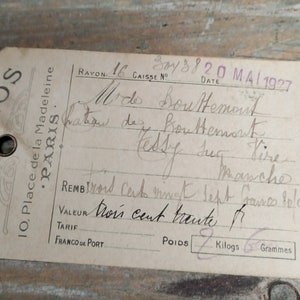 OS
10, Place de la Madeleine
PARIS
RAYON 16 CAISSE Nº DATE 20 MAI 1927
Mme de Bouttemont
de Bouttemont
Tessy sur Vire
Manche
REMB trois cent vingt sept francs
VALEUR trois cent trente f
TARIF
FRANCO DE PORT POIDS 2 Kilogs Grammes